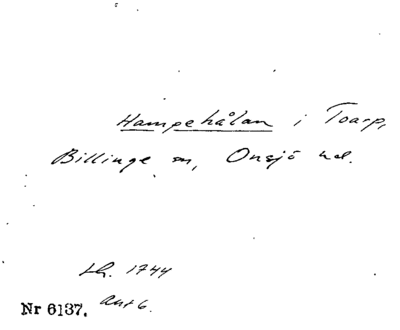 Hampehålan i Toarp,
Billinge sn, Onsjö hd.
Lh. 1744
Nr 6137. Akt 6.